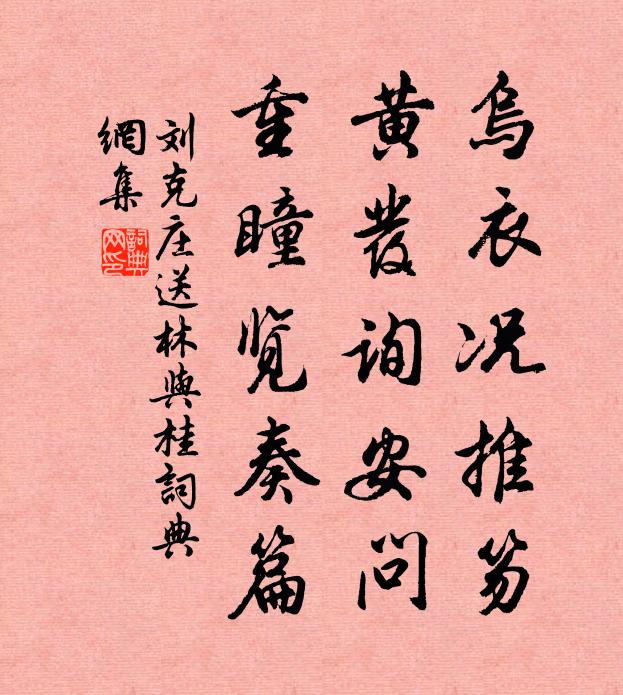 乌衣况推笏
黄发询安问
重瞳览奏篇
刘克庄送林與桂詞典
網集
詞典网印